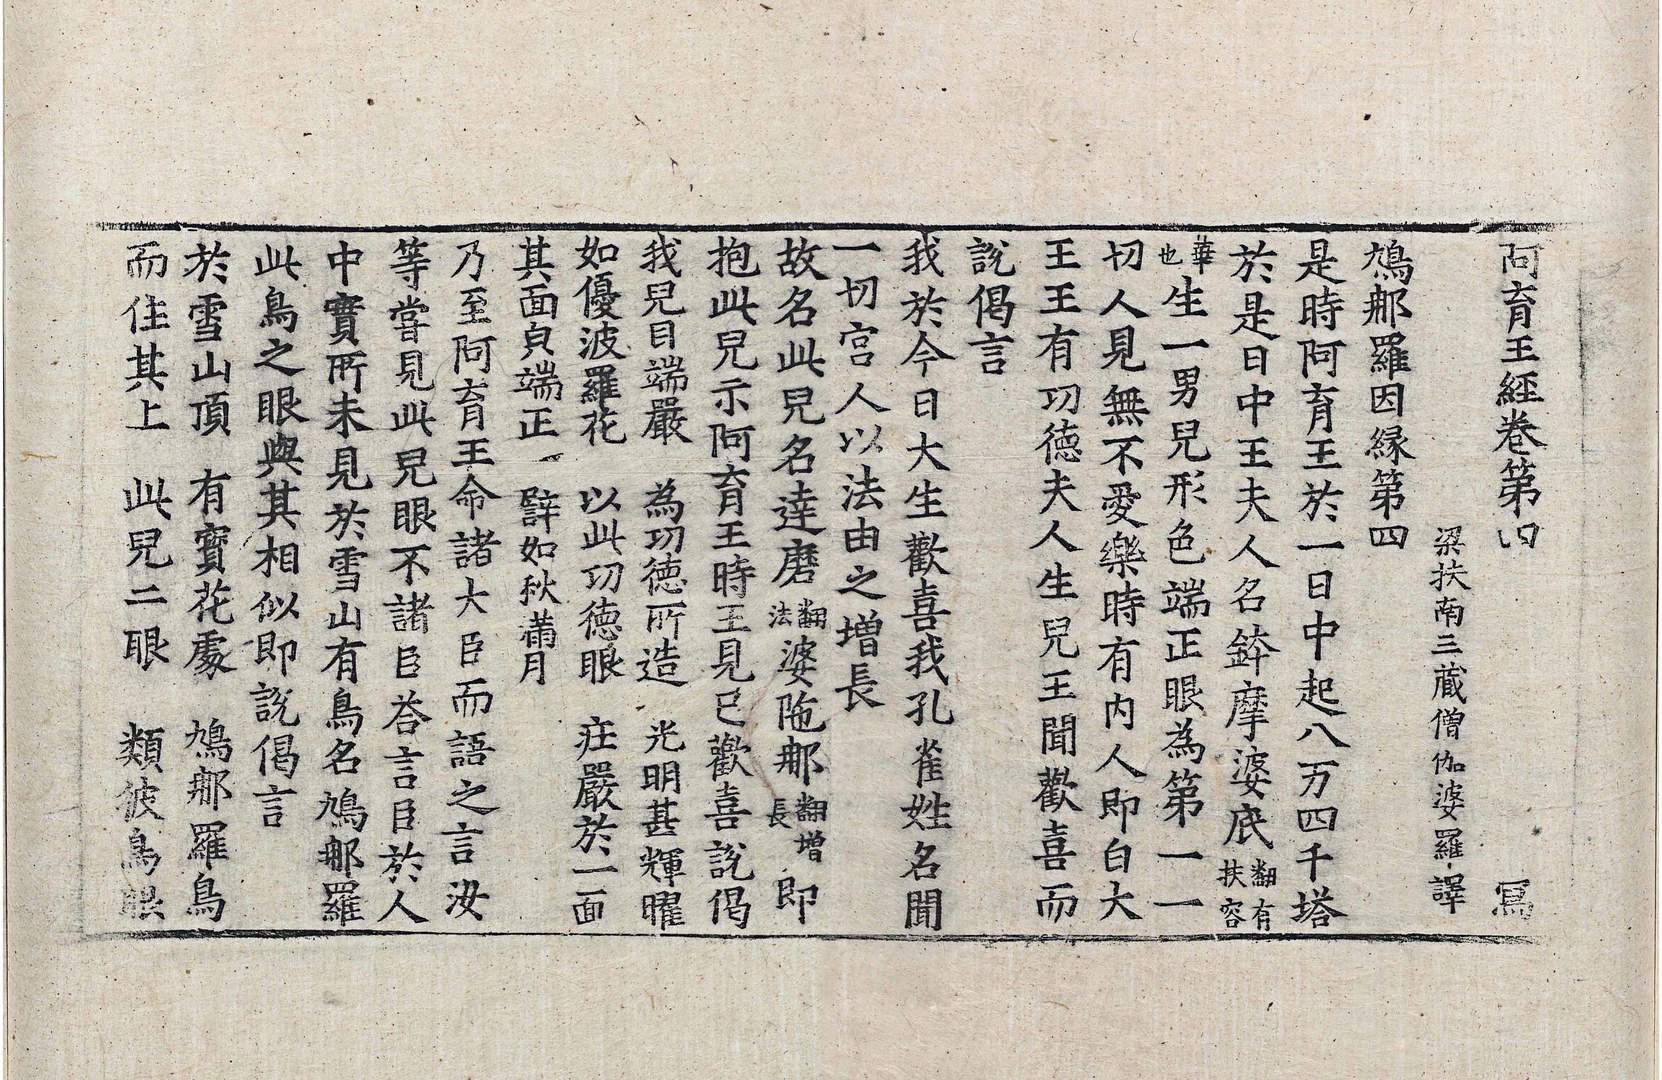 阿育王經卷第四 寫
梁扶南三藏僧伽婆羅譯
鳩郍羅因緣第四
是時阿育王於一日中起八万四千塔
於是日中王夫人名鉢摩婆底翻有扶容
華也生一男兒形色端正眼為第一一
切人見無不愛樂時有内人即白大
王王有功德夫人生兒王聞歡喜而
說偈言
我於今日大生歡喜我孔雀姓名聞
一切宮人以法由之增長
故名此兒名達磨翻法婆陁郍翻增長即
抱此兒示阿育王時王見已歡喜說偈
我兒目端嚴 為功德所造 光明甚輝曜
如優波羅花 以此功德眼 莊嚴於一面
其面皃端正 譬如秋滿月
乃至阿育王命諸大臣而語之言汝
等嘗見此兒眼不諸臣荅言臣於人
中實所未見於雪山有鳥名鳩郍羅
此鳥之眼與其相似即說偈言
於雪山頂 有寶花處 鳩郍羅鳥
而住其上 此兒二眼 類彼鳥眼